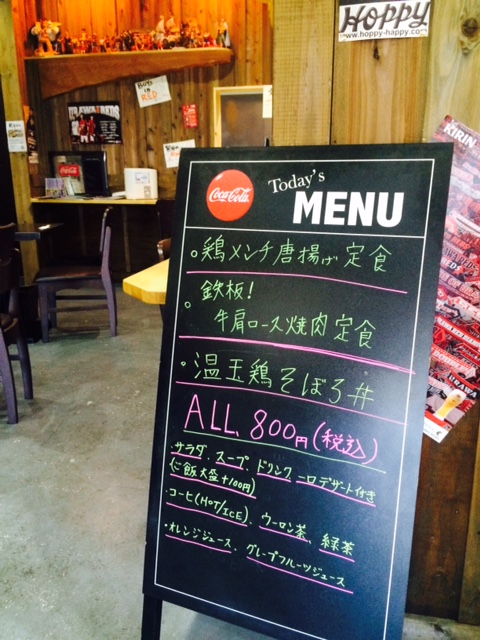 HOPPY
www.hoppy-happy.com
URAWA REDS
RED
KIRIN
Coca-Cola
Coca-Cola
Today's
MENU
。鶏メンチ唐揚げ定食
。鉄板!
牛肩ロース焼肉定食
・温玉鶏そぼろ丼
ALL、800円(税込)
・サラダ、スープ、ドリンク 一口デザート付き
(ご飯大盛+100円)
・コーヒ(HOT/ICE)、ウーロン茶、緑茶
・オレンジジュース、グレープフルーツジュース
URAWA